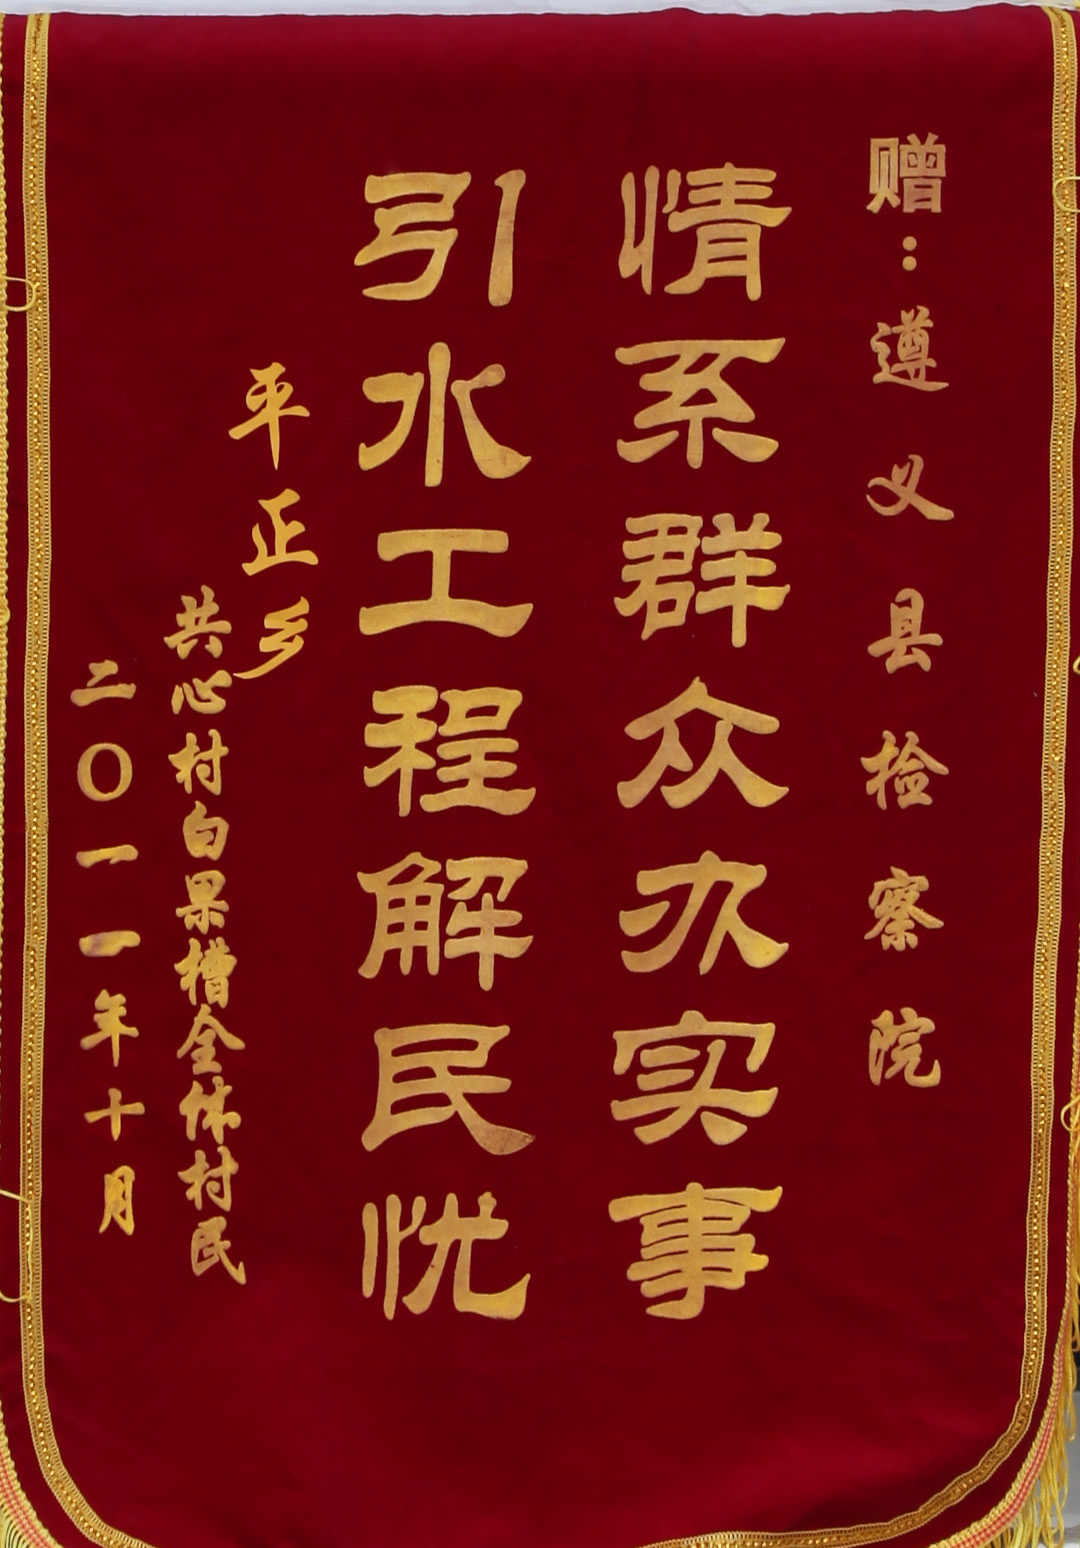 赠：遵义县检察院
情系群众办实事
引水工程解民忧
平正乡
共心村白果槽全体村民
二〇一一年十月